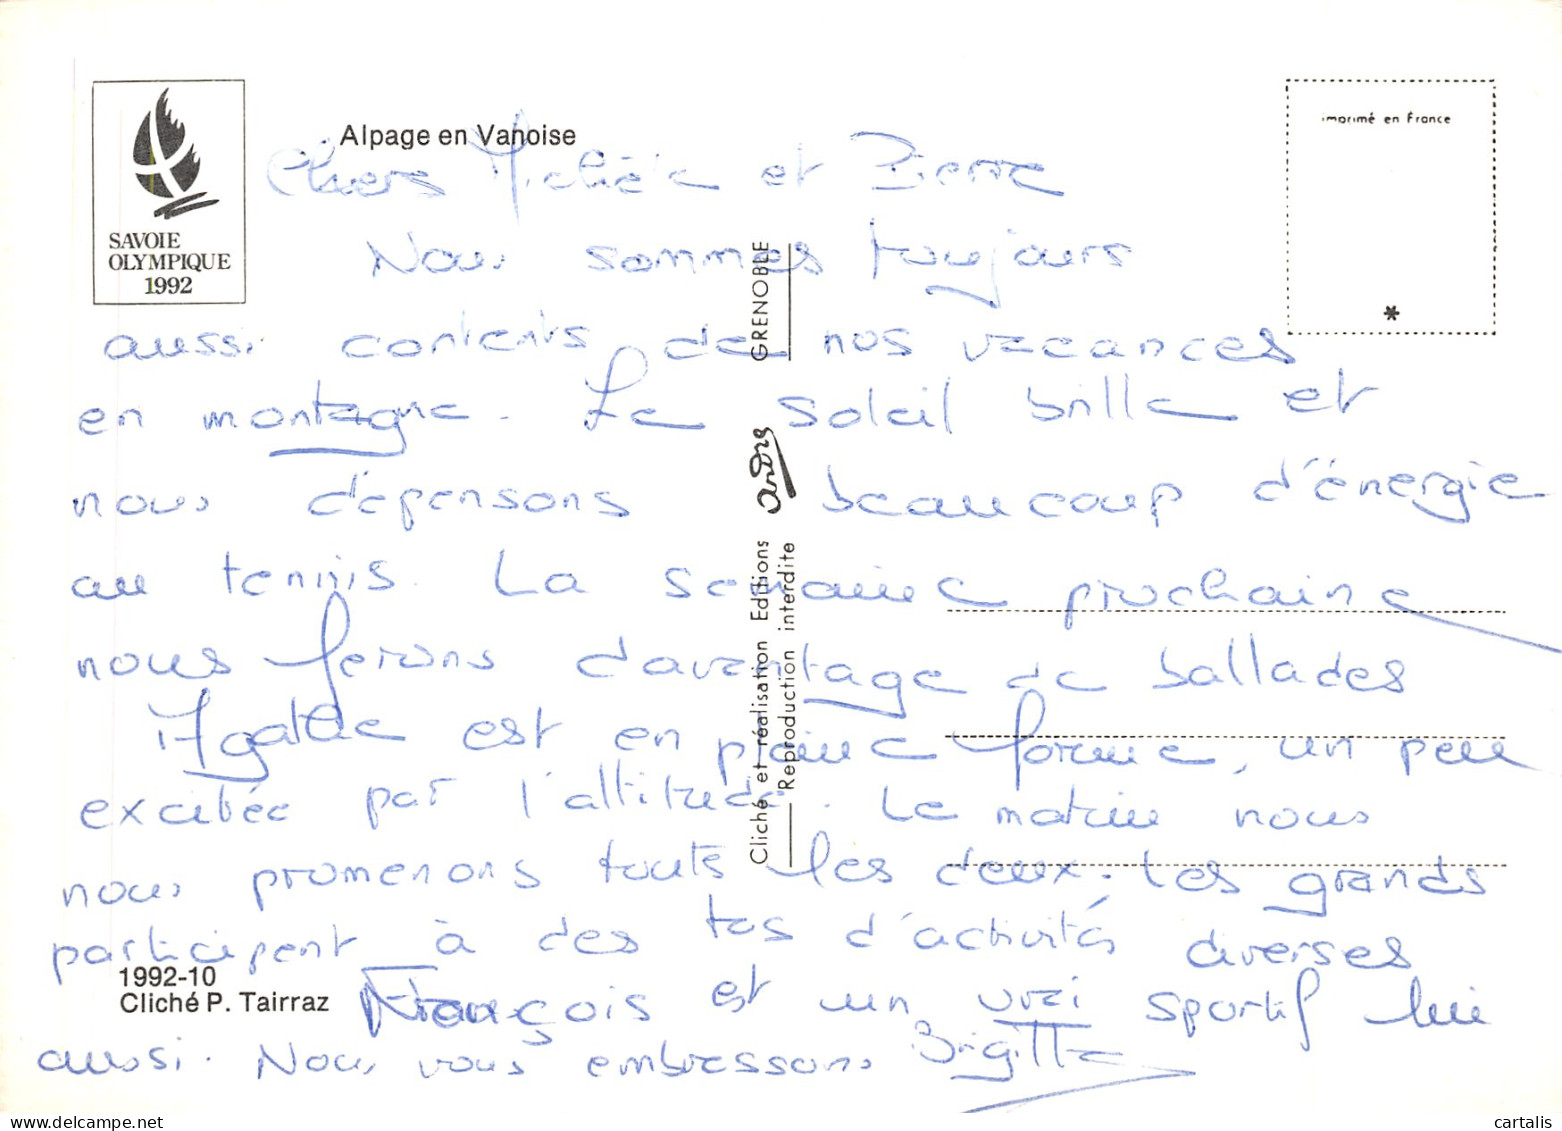 Alpage en Vanoise
imprimé en France
SAVOIE
OLYMPIQUE
1992
*
Chers Michèle et Pierre
Nous sommes toujours
aussi contents de nos vacances
en montagne. Le soleil brille et
nous dépensons beaucoup d'énergie
au tennis. La semaine prochaine
nous ferons davantage de ballades
Agathe est en pleine forme, un peu
excitée par l'altitude. Le matin nous
nous promenons toutes les deux. Les grands
participent à des tas d'activités diverses
François est un vrai sportif lui
aussi. Nous vous embrassons Brigitte
Cliché et réalisation Editions André GRENOBLE
Reproduction interdite
1992-10
Cliché P. Tairraz
delcampe.net
cartalis